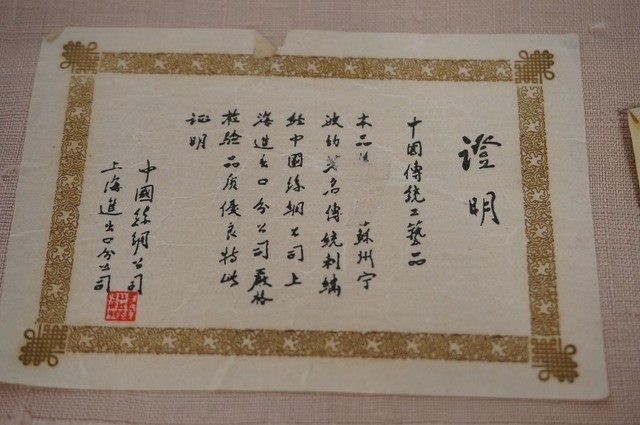 證明
中國傳統工藝品
本品 蘇州宁
波的著名傳統刺繡
经中國絲綢公司上
海進出口分公司严格
检驗品质優良特此
证明
中國絲綢公司
上海進出口分公司